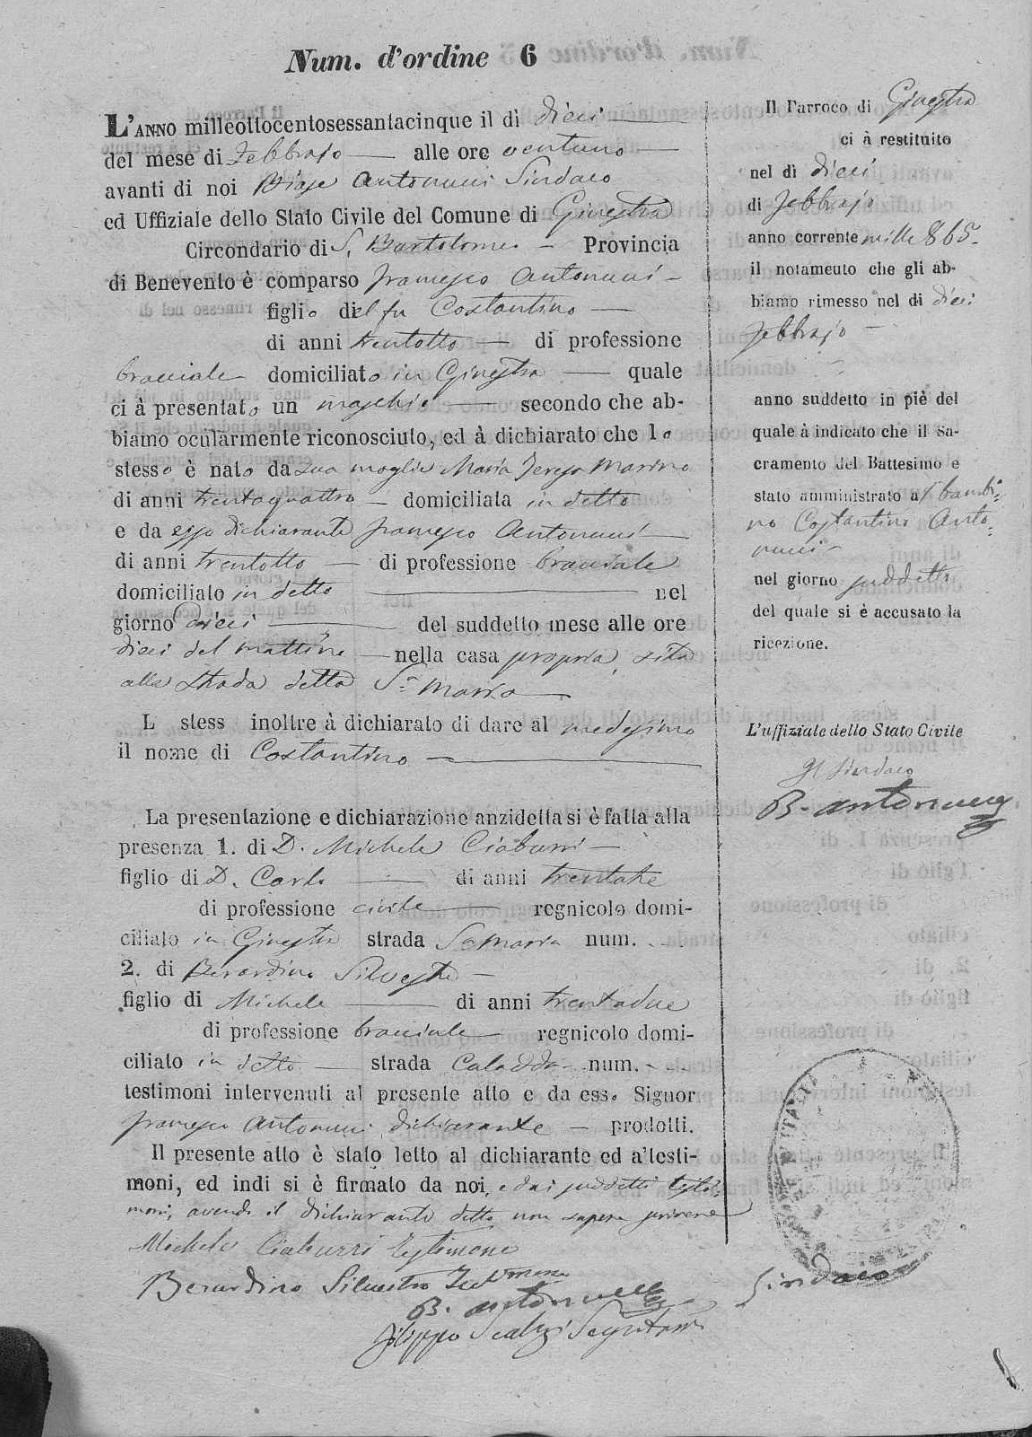 Num. d'ordine 6
L'ANNO milleottocentosessantacinque il dì dieci
del mese di Febbrajo alle ore ventuno
avanti di noi Biase Antonucci Sindaco
ed Uffiziale dello Stato Civile del Comune di Ginestra
Circondario di S. Bartolomeo Provincia
di Benevento è comparso Francesco Antonucci
figlio del fu Costantino
di anni trentotto di professione
bracciale domiciliato in Ginestra quale
ci à presentato un maschio secondo che ab-
biamo ocularmente riconosciuto, ed à dichiarato che lo
stesso è nato da sua moglie Maria Teresa Marino
di anni trentaquattro domiciliata in detto
e da esso dichiarante Francesco Antonucci
di anni trentotto di professione bracciale
domiciliato in detto nel
giorno dieci del suddetto mese alle ore
dieci del mattino nella casa propria, sita
alla strada detta Sa Maria
L stess inoltre à dichiarato di dare al medesimo
il nome di Costantino
La presentazione e dichiarazione anzidetta si è fatta alla
presenza 1. di D. Michele Ciaburri
figlio di D. Carlo di anni trentatre
di professione civile regnicolo domi-
ciliato in Ginestra strada Sa Maria num.
2. di Berardino Silvestro
figlio di Michele di anni trentadue
di professione bracciale regnicolo domi-
ciliato in detto strada num.
testimoni intervenuti al presente atto e da esso Signor
Francesco Antonucci dichiarante prodotti.
Il presente atto è stato letto al dichiarante ed a'testi-
moni, ed indi si è firmato da noi, e dai suddetti testi-
moni, avendo il dichiarante detto non sapere scrivere
Michele Ciaburri Testimone
Berardino Silvestro Testimone
B. Antonucci Sindaco
Filippo Scalzi Segretario
Il Parroco di Ginestra
ci à restituito
nel dì dieci
di Febbrajo
anno corrente mille 865.
il notamento che gli ab-
biamo rimesso nel dì dieci
Febbrajo
anno suddetto in piè del
quale à indicato che il Sa-
cramento del Battesimo e
stato amministrato al bambi-
no Costantino Anto-
nucci
nel giorno suddetto
del quale si è accusato la
ricezione.
L'uffiziale dello Stato Civile
Il Sindaco
B. Antonucci